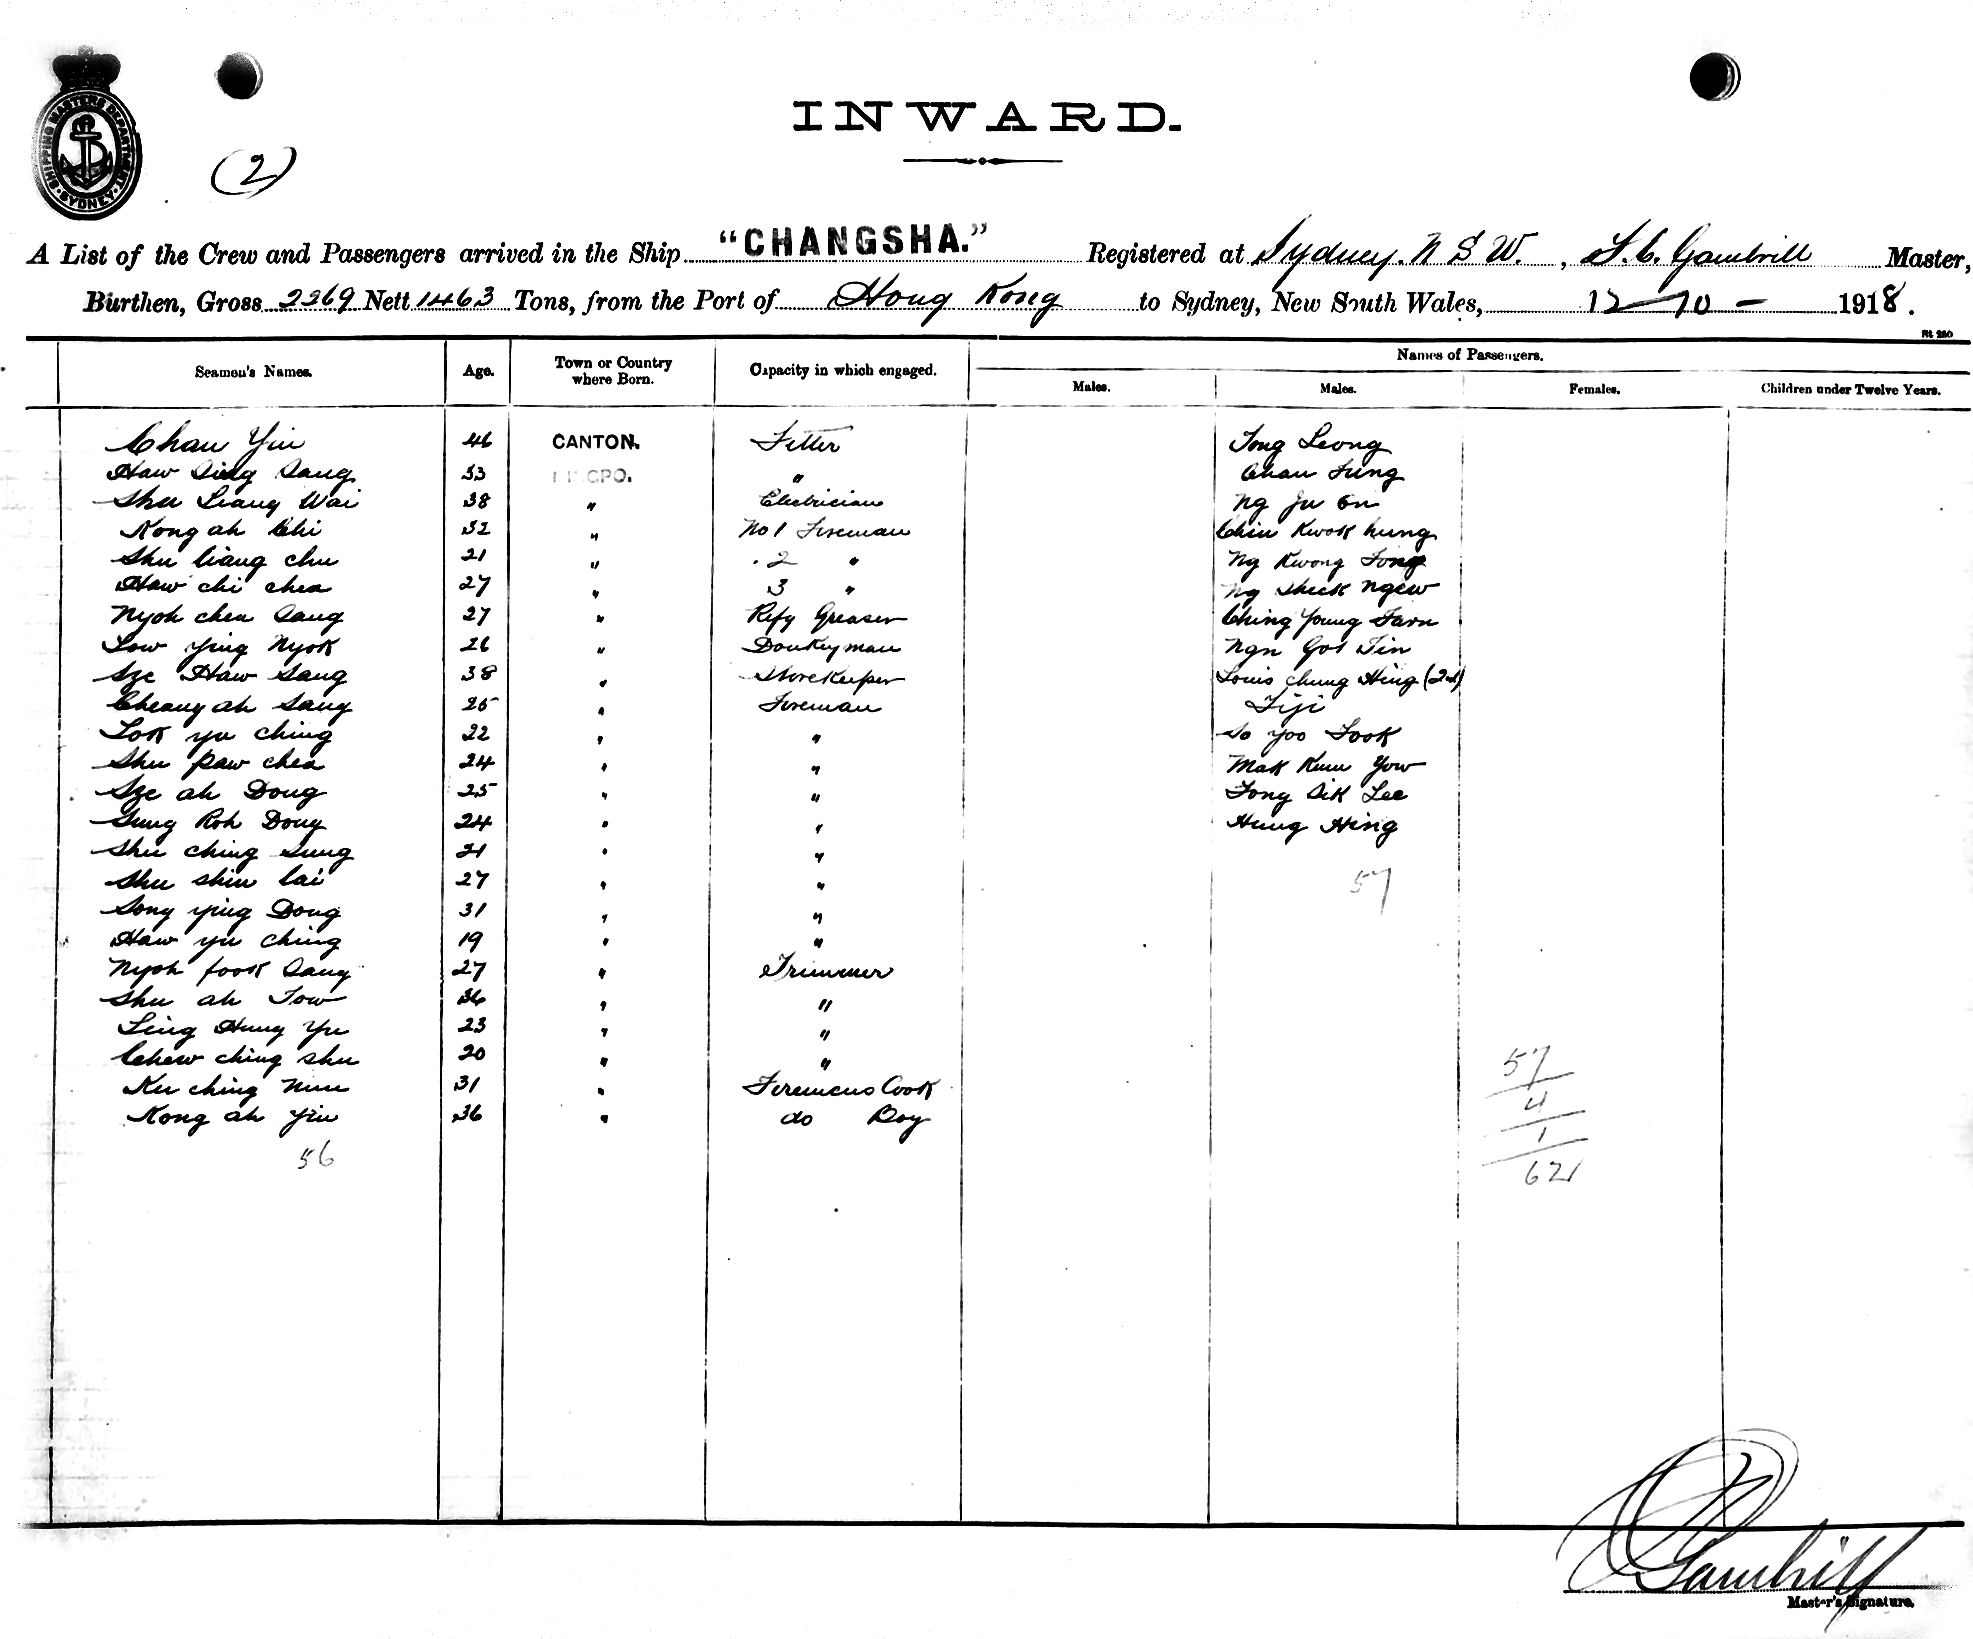 SHIPPING MASTERS DEPARTMENT
SYDNEY
(2)
INWARD.
A List of the Crew and Passengers arrived in the Ship "CHANGSHA." Registered at Sydney. N S W., F. C. Gambrill Master,
Burthen, Gross 2269 Nett 1463 Tons, from the Port of Hong Kong to Sydney, New South Wales, 12-10- 1918.
St 280
Seamen's Names. Age. Town or Country where Born. Capacity in which engaged. Names of Passengers.
Males. Males. Females. Children under Twelve Years.
Chan Yiu 46 CANTON. Fitter Tong Leong
Haw Sing Sang 33 " Chan Fung
Shu Liang Wai 38 " Electrician Ng Ju On
Kong ah Chi 32 " No 1 Fireman Chin Kwok hung
Shu liang chu 21 " . 2 " Ng Kwong Tong
Haw chi chea 27 " 3 " Ng Sheek Ngew
Nyoh chea Sang 27 " Refg Greaser Ching Young Farn
Low ying Nyok 26 " Donkeyman Ngn Got Tin
Sze Haw Sang 38 " Storekeeper Louis Chung Hing (2nd)
Cheang ah Sang 25 " Fireman Fiji
Lok yu ching 22 " " So Yoo Fook
Shu paw chea 24 " " Mak Kum Yow
Sze ah Dong 25 " " Fong Sik Lee
Gung Roh Dong 24 " " Hung Hing
Shu ching Sung 21 " "
Shu shin lai 27 " " 57
Song ying Dong 31 " "
Haw yu ching 19 " "
Nyoh fook Sang 27 " Trimmer
Shu ah Tow 36 " "
Ling Hung Yu 23 " "
Chew ching shu 20 " " 57
Ku ching Nun 31 " Firemens Cook 4
Kong ah Yiu 36 " do Boy 1
56 62
Gambrill
Master's Signature.